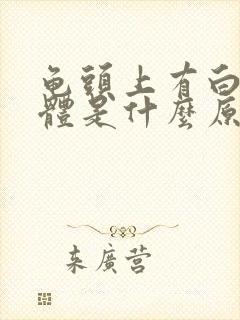 龟頭上有白
體是什麼原
来廣营